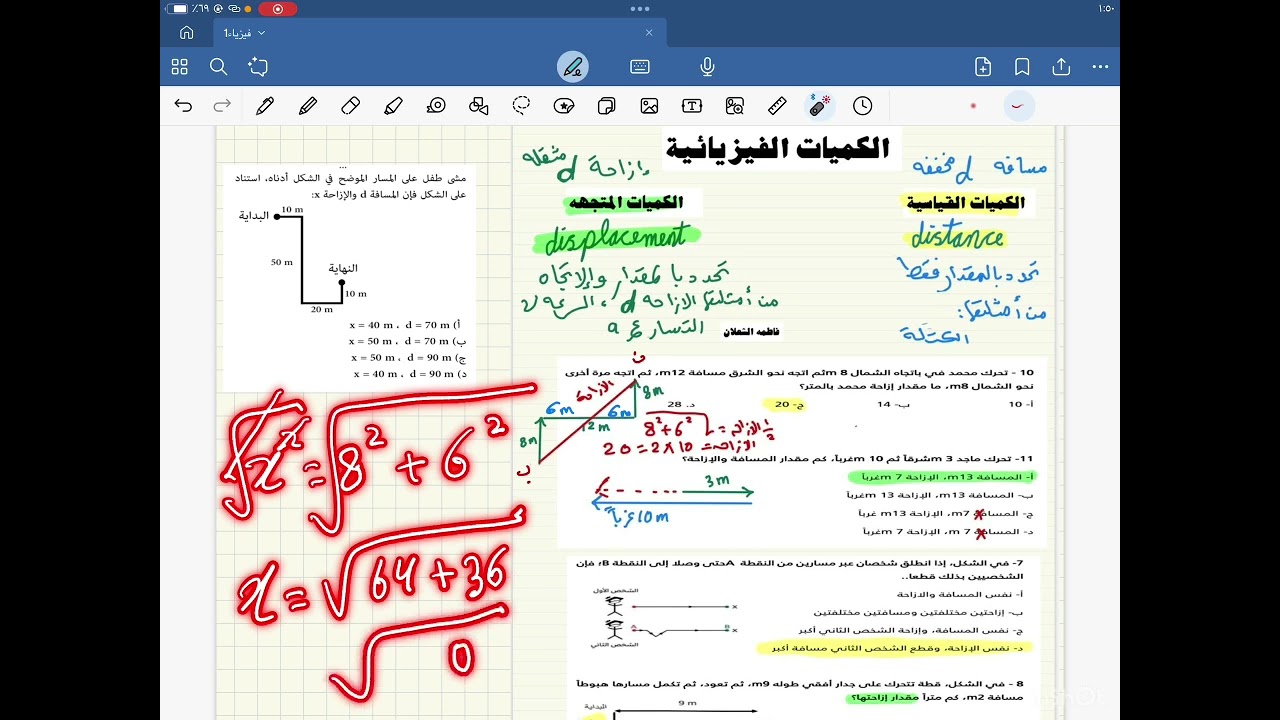 ١:٥٠
٪٦٩
فيزياء1
الكميات الفيزيائية
مسافه d مخففه
وإزاحة d مثقله
الكميات القياسية
الكميات المتجهه
distance
displacement
تحدد بالمقدار فقط
تحدد بالمقدار والإتجاه
من أمثلتها:
من أمثلتها الازاحه d ، السرعه v
الكتلة
التسارع a
فاطمه الشعلان
...
مشى طفل على المسار الموضح في الشكل أدناه، استناد
على الشكل فإن المسافة d والإزاحة x:
10 m
البداية
50 m
النهاية
10 m
20 m
أ) x = 40 m ، d = 70 m
ب) x = 50 m ، d = 70 m
ج) x = 50 m ، d = 90 m
د) x = 40 m ، d = 90 m
10 - تحرك محمد في باتجاه الشمال 8 mثم اتجه نحو الشرق مسافة m12، ثم اتجه مرة أخرى
نحو الشمال m8، ما مقدار إزاحة محمد بالمتر؟
أ- 10
ب- 14
ج- 20
د. 28
ن
الازاحة
8m
6m
6m
12m
8m
ب
½ الازاحه = √8²+6²
الازاحه = 10×2 = 20
11- تحرك ماجد 3 mشرقاً ثم 10 mغرباً، كم مقدار المسافة والإزاحة؟
أ- المسافة m13، الإزاحة 7 mغرباً
ب- المسافة m13، الإزاحة 13 mغرباً
ج- المسافة m7، الإزاحة m13 غرباً
د- المسافة 7 m، الإزاحة 7 mغرباً
3m
10m غرباً
7- في الشكل، إذا انطلق شخصان عبر مسارين من النقطة Aحتى وصلا إلى النقطة B؛ فإن
الشخصيين بذلك قطعا..
أ- نفس المسافة والازاحة
ب- إزاحتين مختلفتين ومسافتين مختلفتين
ج- نفس المسافة، وإزاحة الشخص الثاني أكبر
د- نفس الإزاحة، وقطع الشخص الثاني مسافة أكبر
الشخص الأول
x
A
B
x
الشخص الثاني
8 - في الشكل، قطة تتحرك على جدار أفقي طوله m9، ثم تعود، ثم تكمل مسارها هبوطاً
مسافة m2، كم متراً مقدار إزاحتها؟
9 m
البداية
√x² = √8² + 6²
x = √64+36
√0